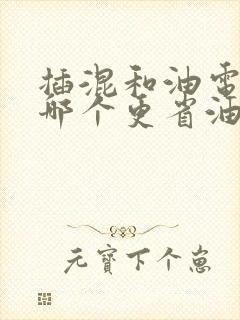 插混和油電
哪个更省油
元寳下个崽